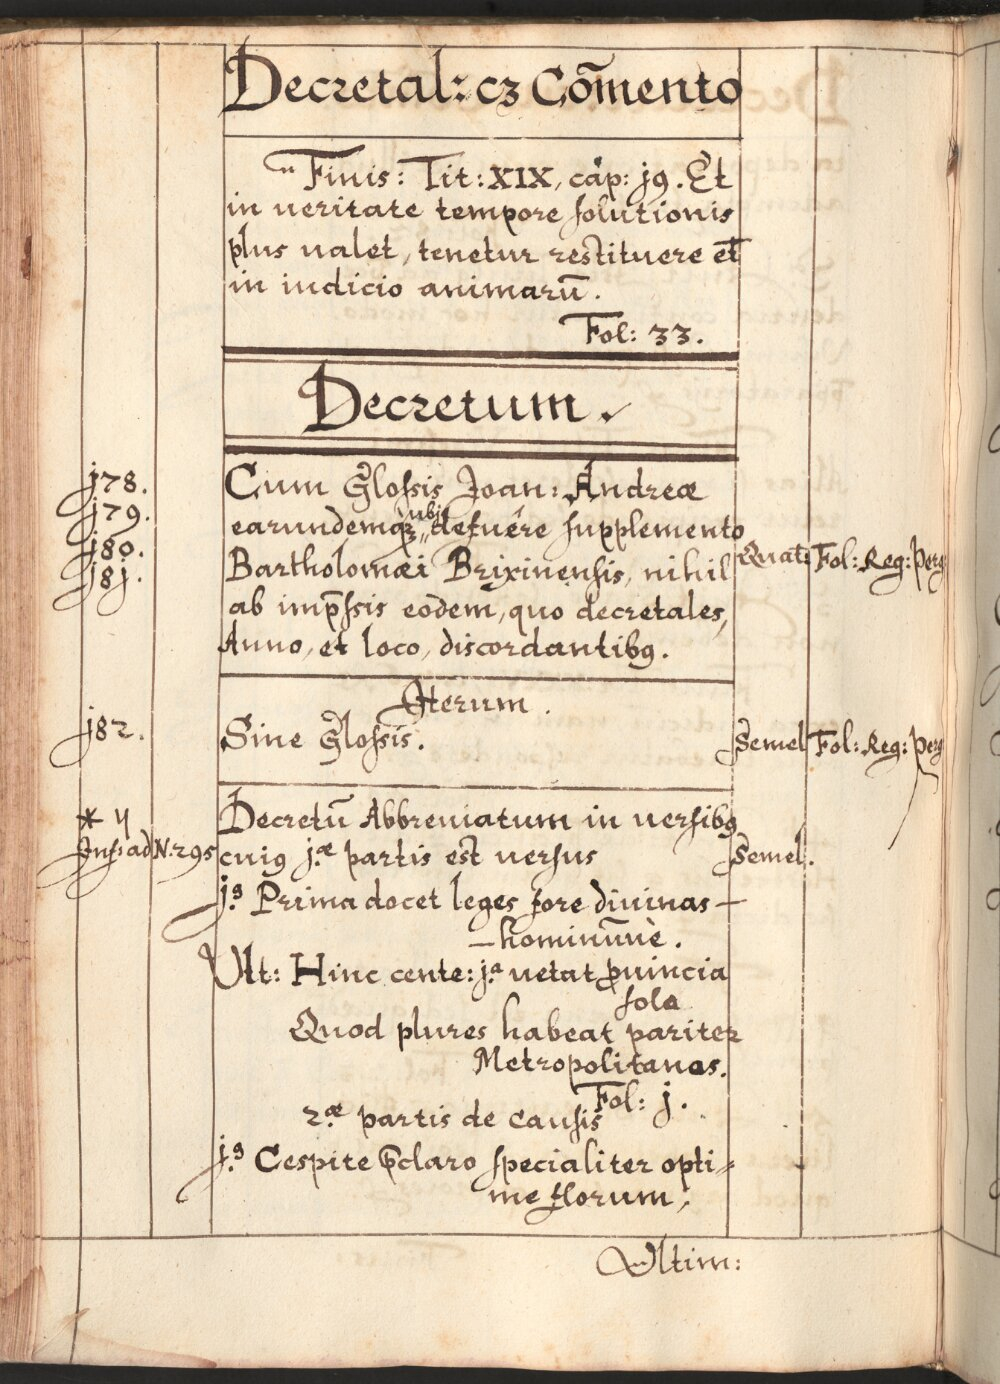 Decretal: cꝫ Com̄ento
Finis: Tit: XIX, cap: j9. Et
in ueritate tempore solutionis
plus ualet, tenetur restituere et
in iudicio animarū.
Fol: 33.
Decretum.
j78.
j79.
j80.
j8j.
Cum Glossis Joan: Andreæ
ubi
earundemqꝫ defuêre supplemento
Bartholomæi Brixinensis, nihil
ab imp̄ssis eodem, quo decretales,
Anno, et loco, discordantibꝰ.
Quat: Fol: Reg: Perg
Iterum.
j82. Sine Glossis. Semel Fol: Reg: Perg
* 4
Inf: ad N: 295
Decretū Abbreuiatum in uersibꝰ
cuiꝰ j.æ partis est uersus Semel.
j.s Prima docet leges fore diuinas —
— hominūuè.
Ult: Hinc cente: j.a uetat ꝓuincia
sola
Quod plures habeat pariter
Metropolitanos.
Fol: j.
2.æ partis de Causis
j.s Cespite p̄claro specialiter opti=
me florum;
Ultim: